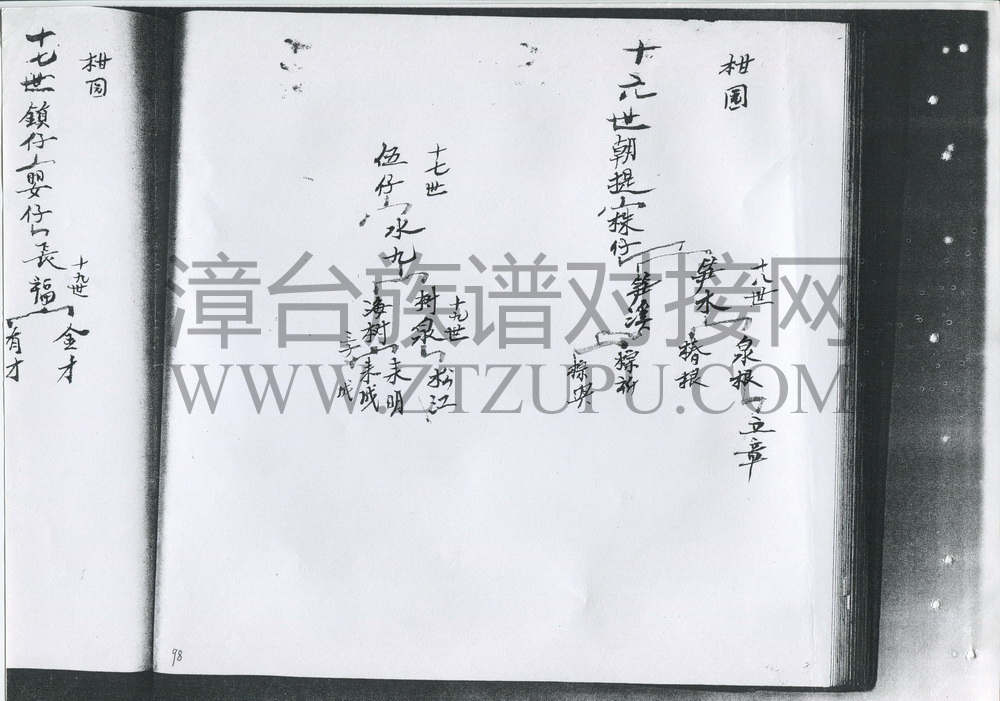 柑园
十六世朝提 糇仔
笋木
笋溪
十八世
泉根
椿根
立章
棕祈
棕興
十七世
伍仔
水九
树泉
海树
十九世
松江
来明
来成
98
柑园
十七世鎖仔
嬰仔
長福
十九世
金才
有才
漳台族谱对接网
WWW.ZTZUPU.COM